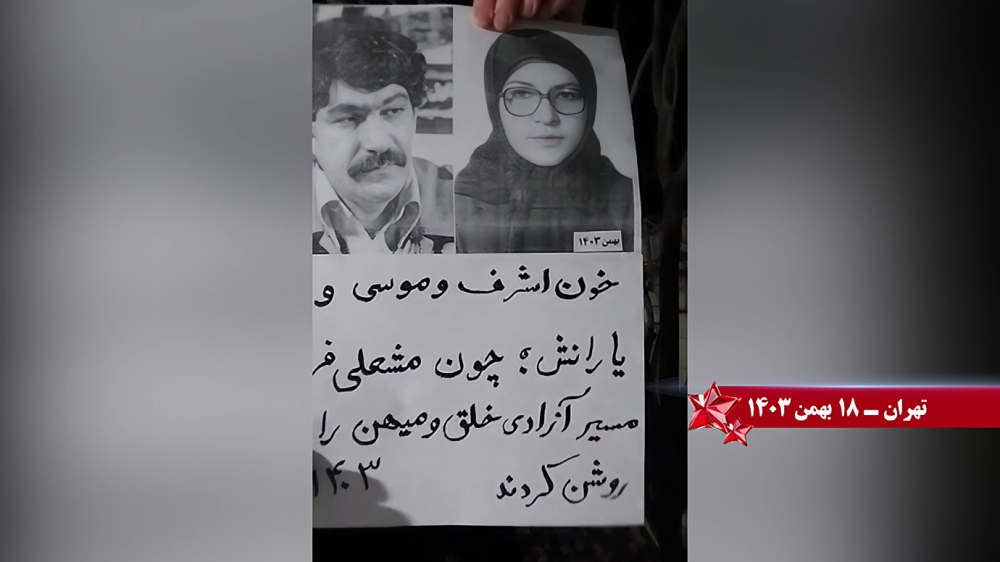 بهمن ۱۴۰۳
خون اشرف و موسی و
یارانش؛ چون مشعلی
مسیر آزادی خلق و میهن را
روشن کردند
۱۴۰۳
تهران ــ ۱۸ بهمن ۱۴۰۳